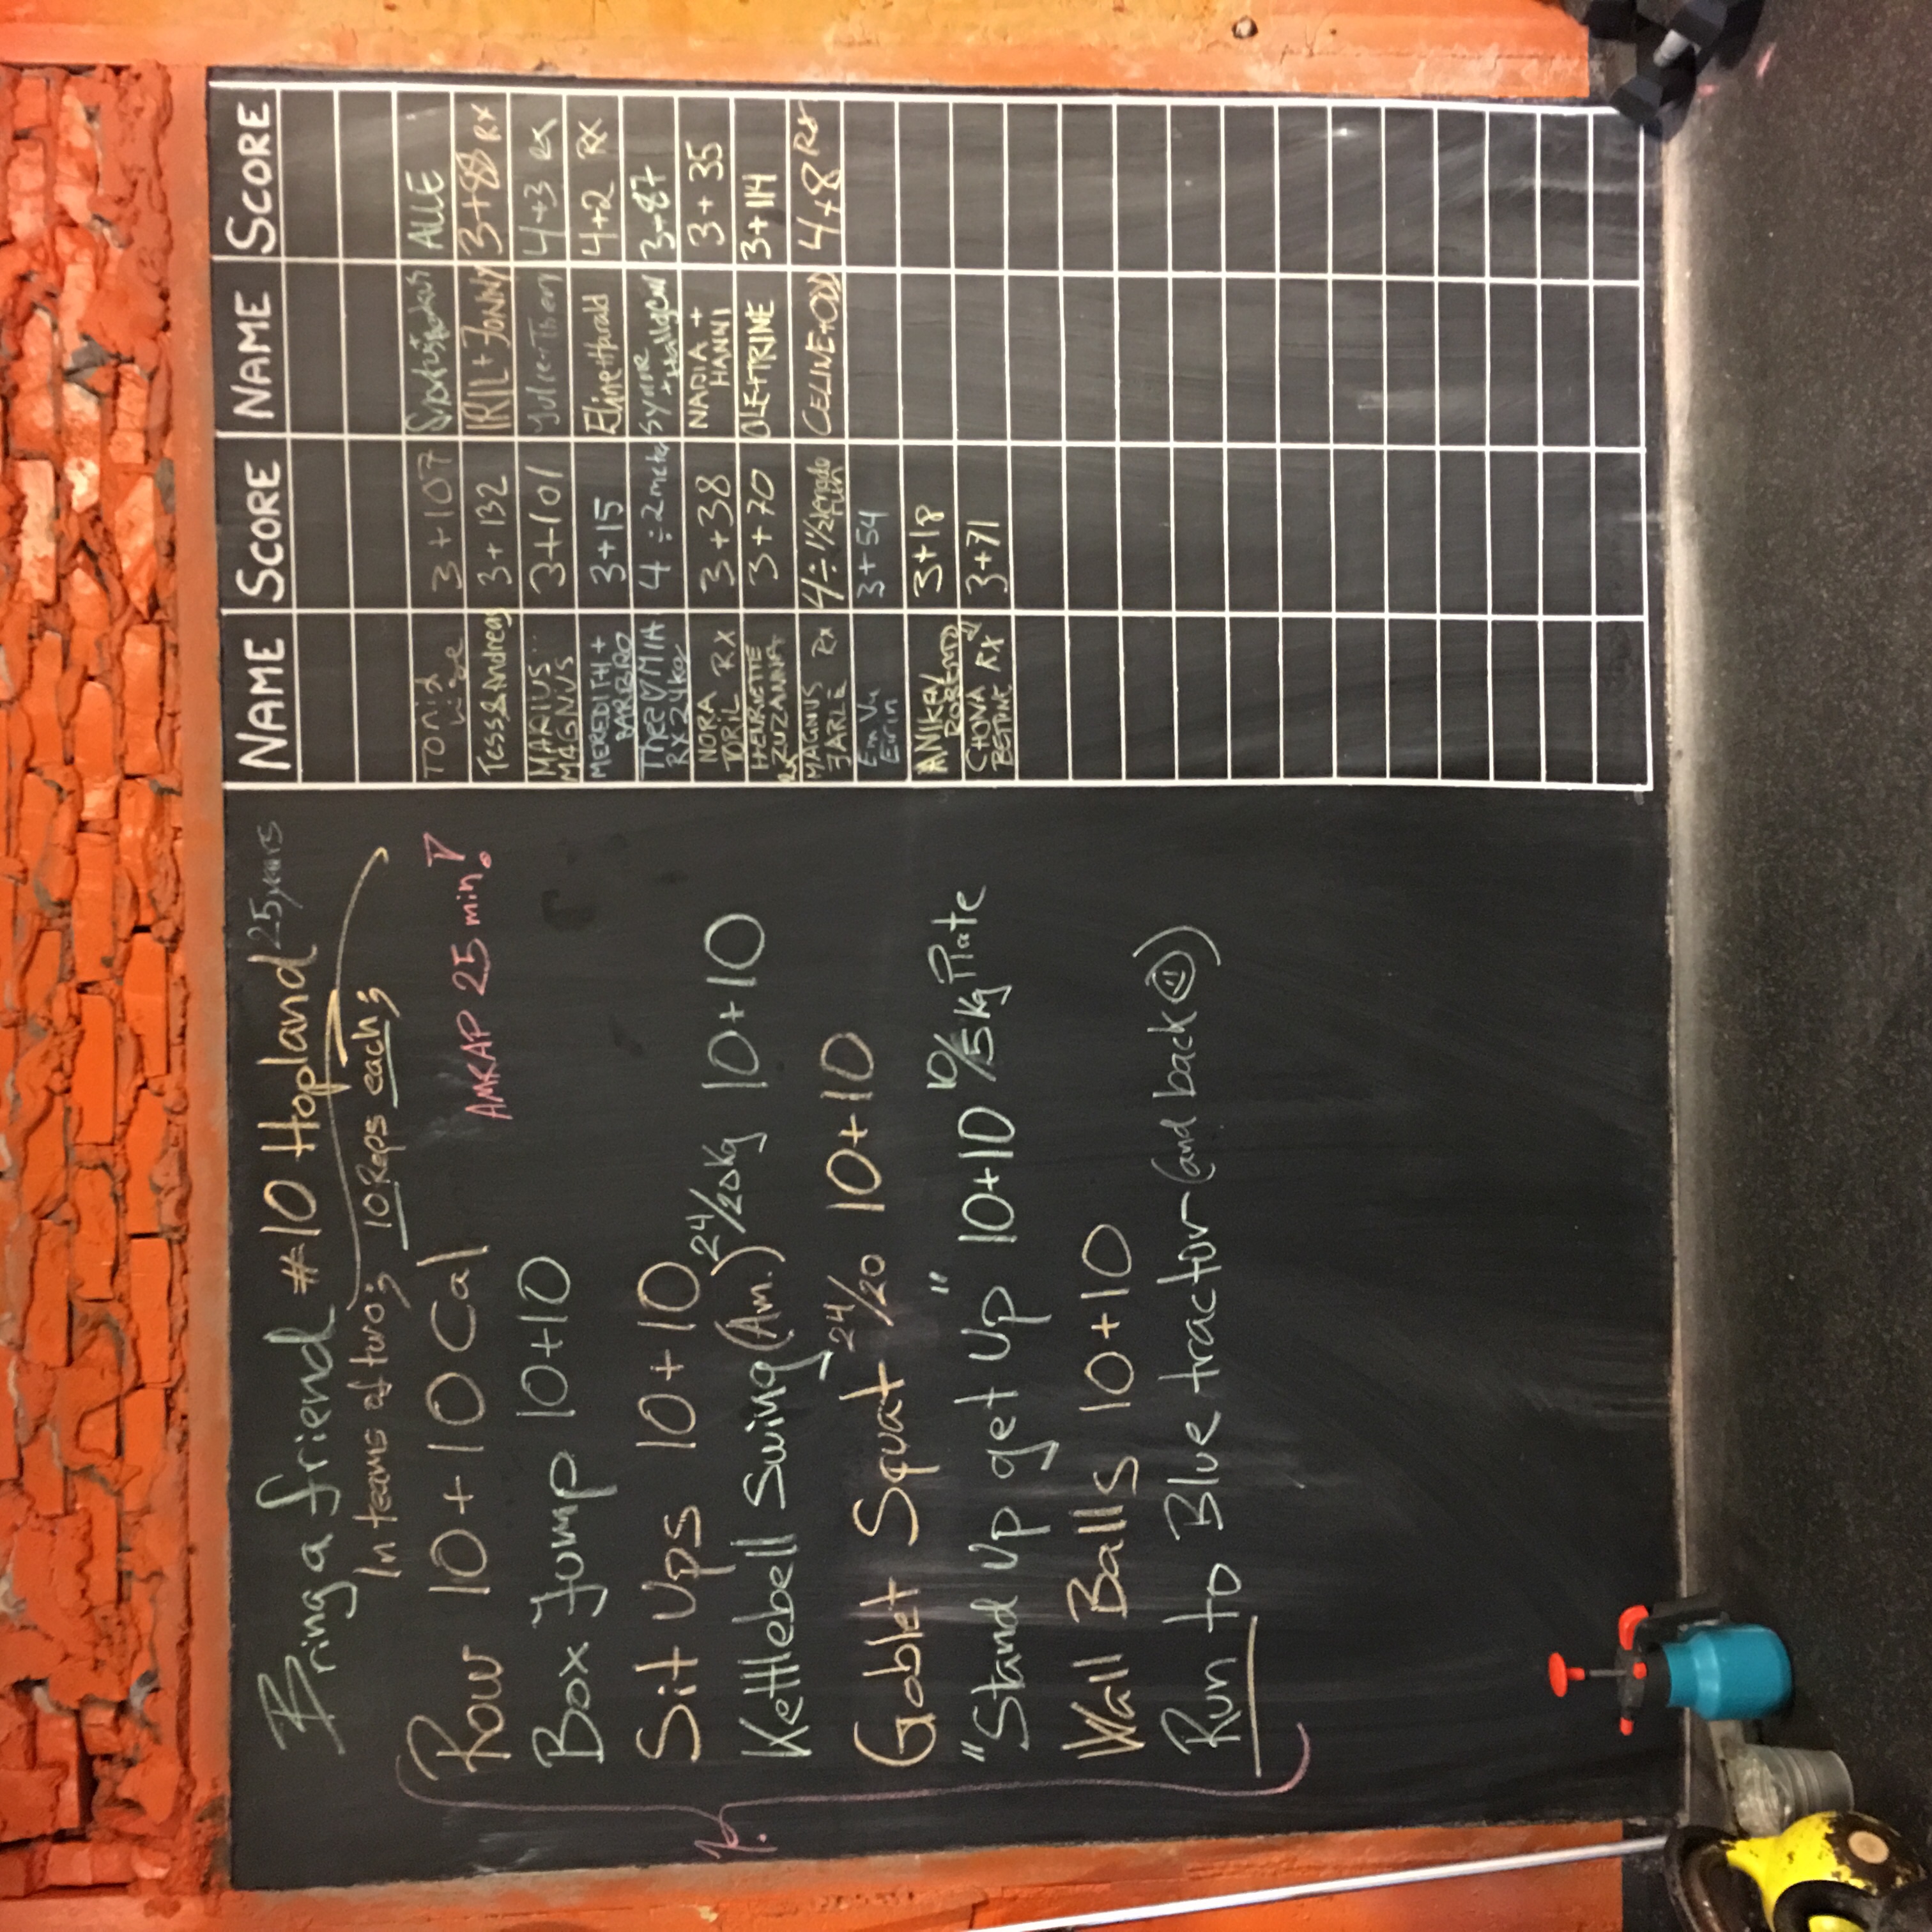 Bring a friend #10 Hopland 25 years
In teams of two; 10 Reps each;
Row 10+10 Cal
AMRAP 25 min!
Box Jump 10+10
Sit Ups 10+10
Kettlebell Swing (Am.) 24/20kg 10+10
Goblet Squat 24/20 10+10
"Stand up get up" 10+10 10/5kg Plate
Wall Balls 10+10
Run to Blue tractor (and back)
NAME SCORE NAME SCORE
3+107 ALLE
Tess&Andreas 3+132 IRIL+JONNY 3+88 RX
MARIUS 3+101 4+3 RX
MAGNUS
MEREDITH + 3+15 Eline+Harald 4+2 RX
BARBRO
Thee♡MIA 4 ÷2meter Synne 3+87
RX 24kg
NORA RX 3+38 NADIA + 3+35
TORIL HANNI
HENRIETTE 3+70 OLE+TRINE 3+114
RX ZUZANNA
MAGNUS RX 4÷1 1/2lengde CELINE+ODD 4+8 RX
JARLE
3+54
Eirin
ANIKEN 3+18
CHONA RX 3+71
BETTINE